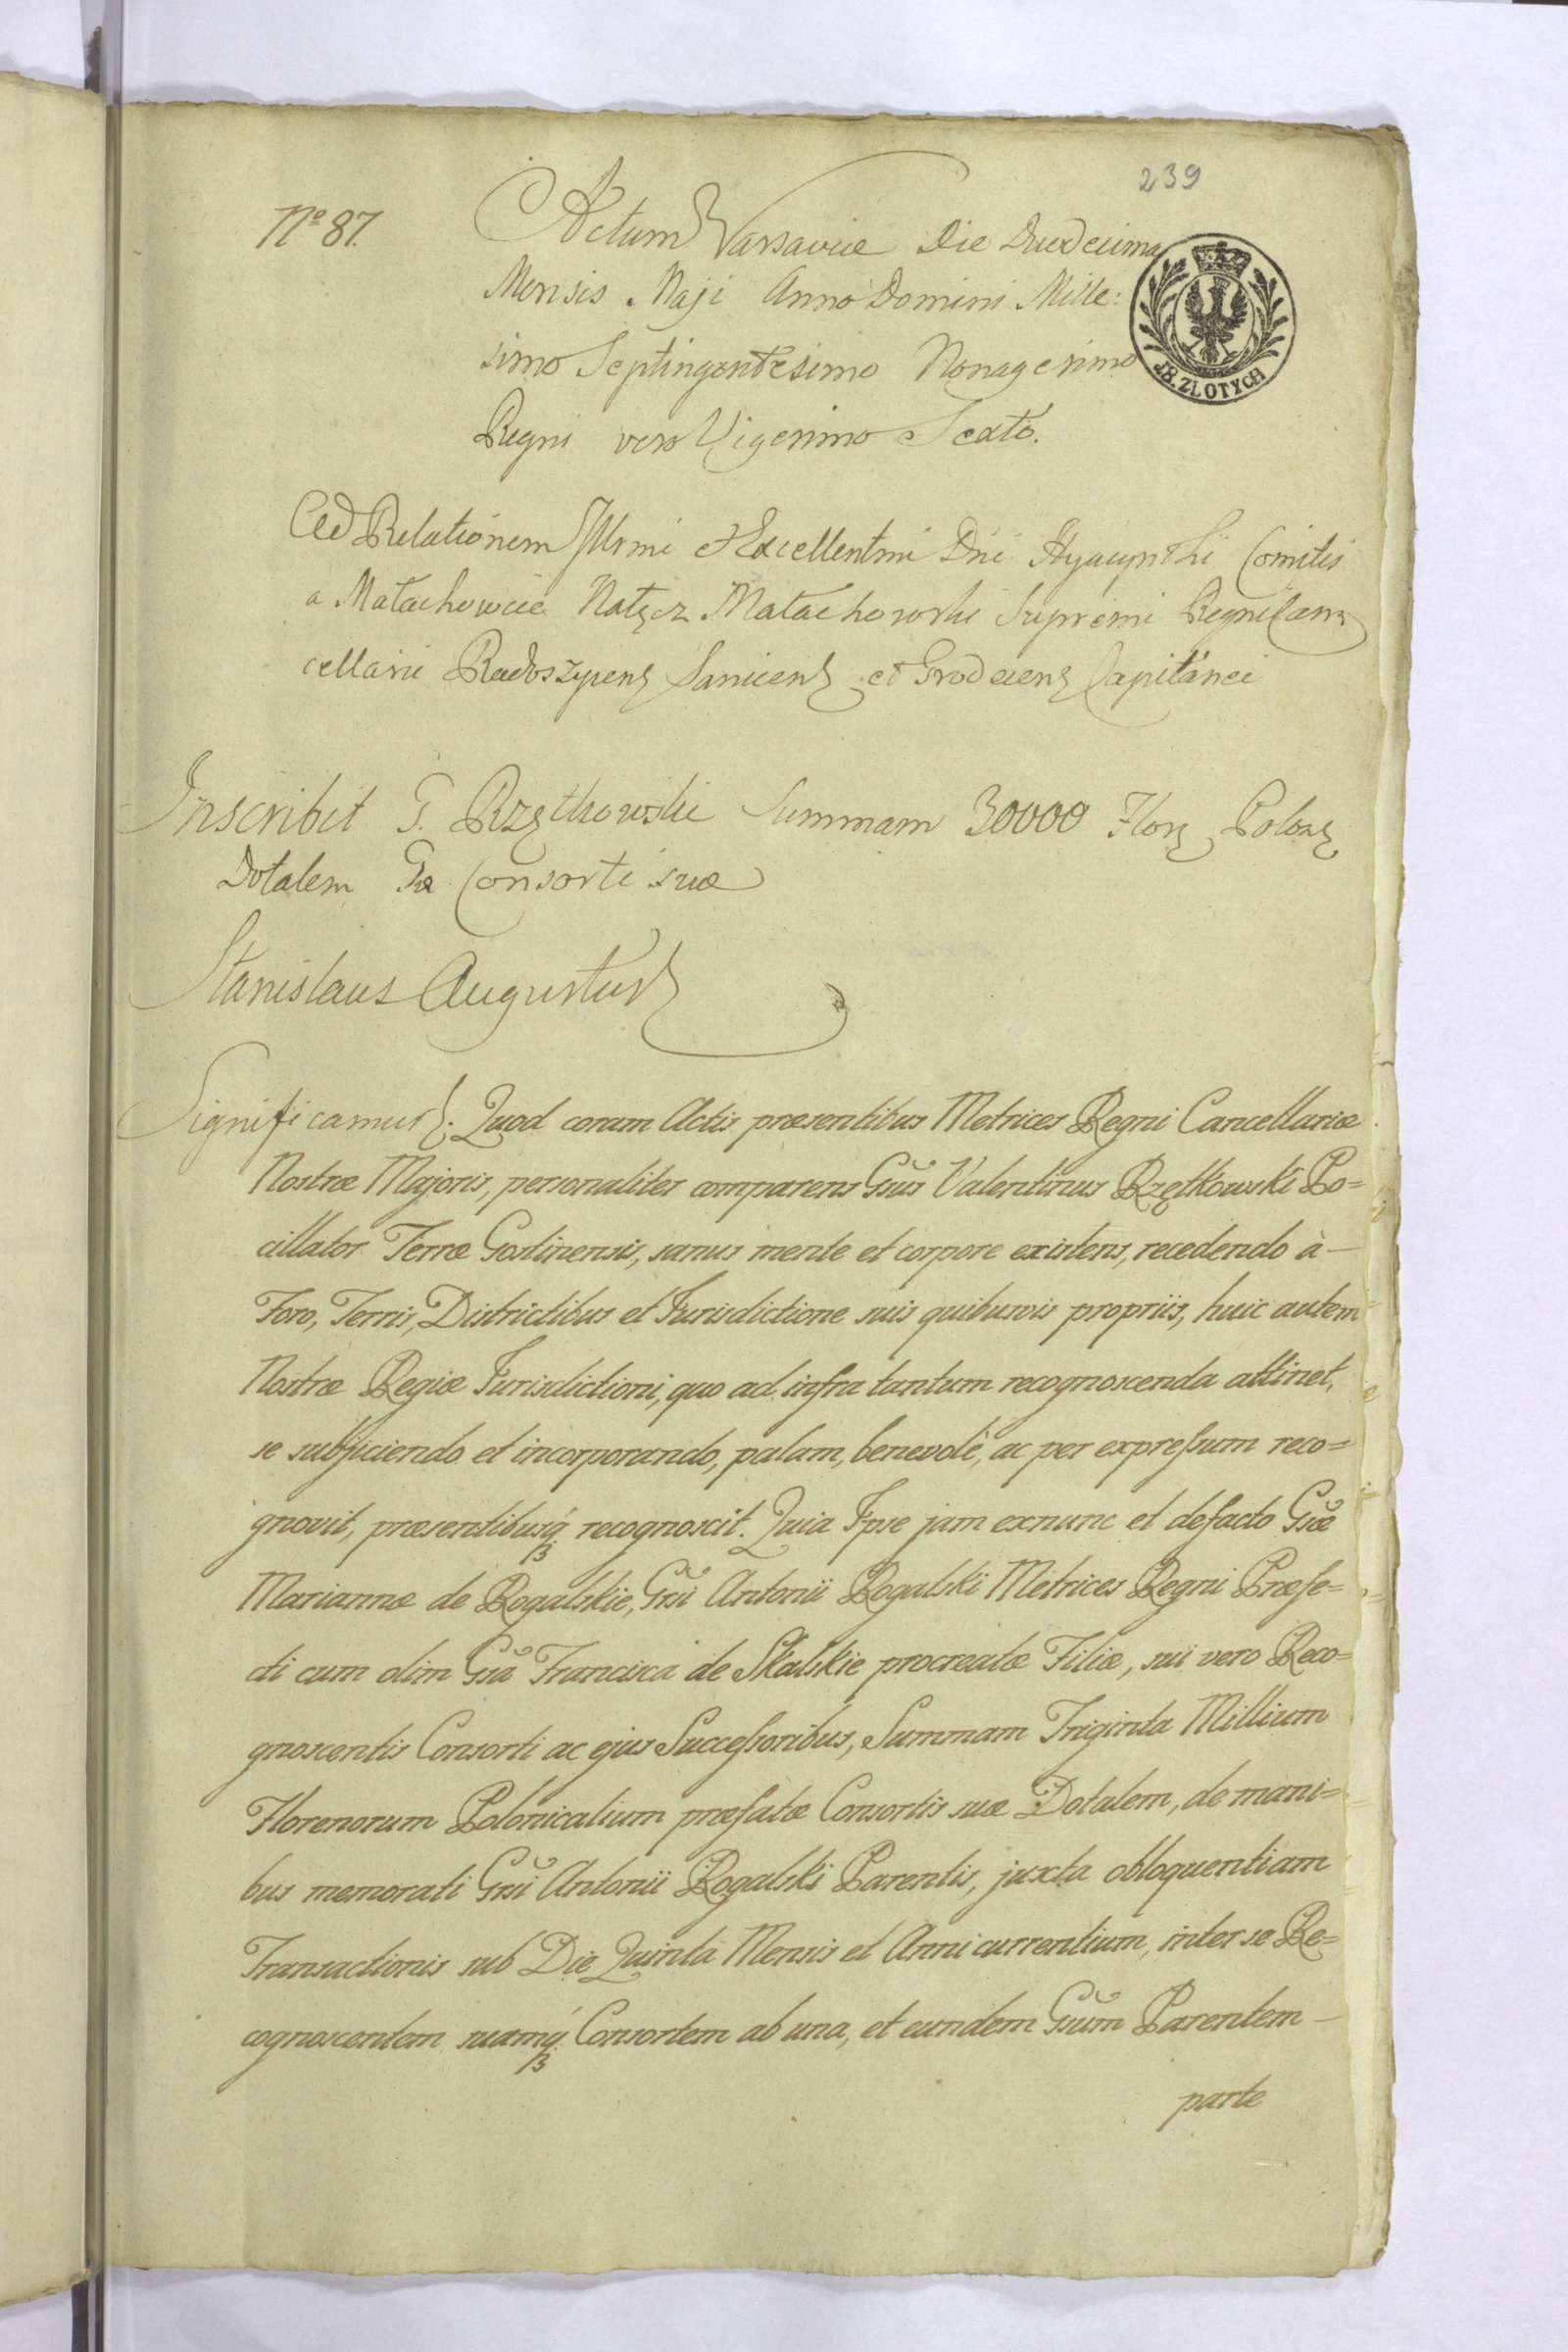 239
Nº 87.
Actum Varsaviæ Die Duodecima
Mensis Maji Anno Domini Mille:
simo Septingentesimo Nonagesimo
Regni vero Vigesimo Sexto.
18. ZŁOTYCH
Ad Relationem Illrmi et Excellentmi Dni Hyacynthi Comitis
a Małachowice Nałęcz Małachowski Supremi Regni Can
cellarii Radoszycens Sanicens et Grodecens Capitanei
Inscribit G. Rzętkowski Summam 30000 Flor Polon
Dotalem Gæ Consorti suæ
Stanislaus Augustus
Significamus. Quod coram Actis præsentibus Metrices Regni Cancellariæ
Nostræ Majoris, personaliter comparens Gsus Valentinus Rzętkowski Po=
cillator Terræ Gostinensis, sanus mente et corpore existens, recedendo à
Foro, Terris, Districtibus et Jurisdictione suis quibusvis propriis, huic autem
Nostræ Regiæ Jurisdictioni, quo ad infra tantum recognoscenda attinet,
se subjiciendo et incorporando, palam, benevolè, ac per expressum reco=
gnovit, præsentibusq́ recognoscit. Quia Ipse jam exnunc et defacto Gsæ
Mariannæ de Rogalskie, Grsi Antonii Rogalski Metrices Regni Præfe=
cti cum olim Gsa Francisca de Skalskie procreatæ Filiæ, sui vero Reco=
gnoscentis Consorti ac ejus Successoribus, Summam Triginta Millium
Florenorum Polonicalium præfatæ Consortis suæ Dotalem, de mani=
bus memorati Grsi Antonii Rogalski Parentis, juxta obloquentiam
Transactionis sub Die Quintâ Mensis et Anni currentium, inter se Re=
cognoscentem suamq́ Consortem ab una, et eundem Gsum Parentem
parte